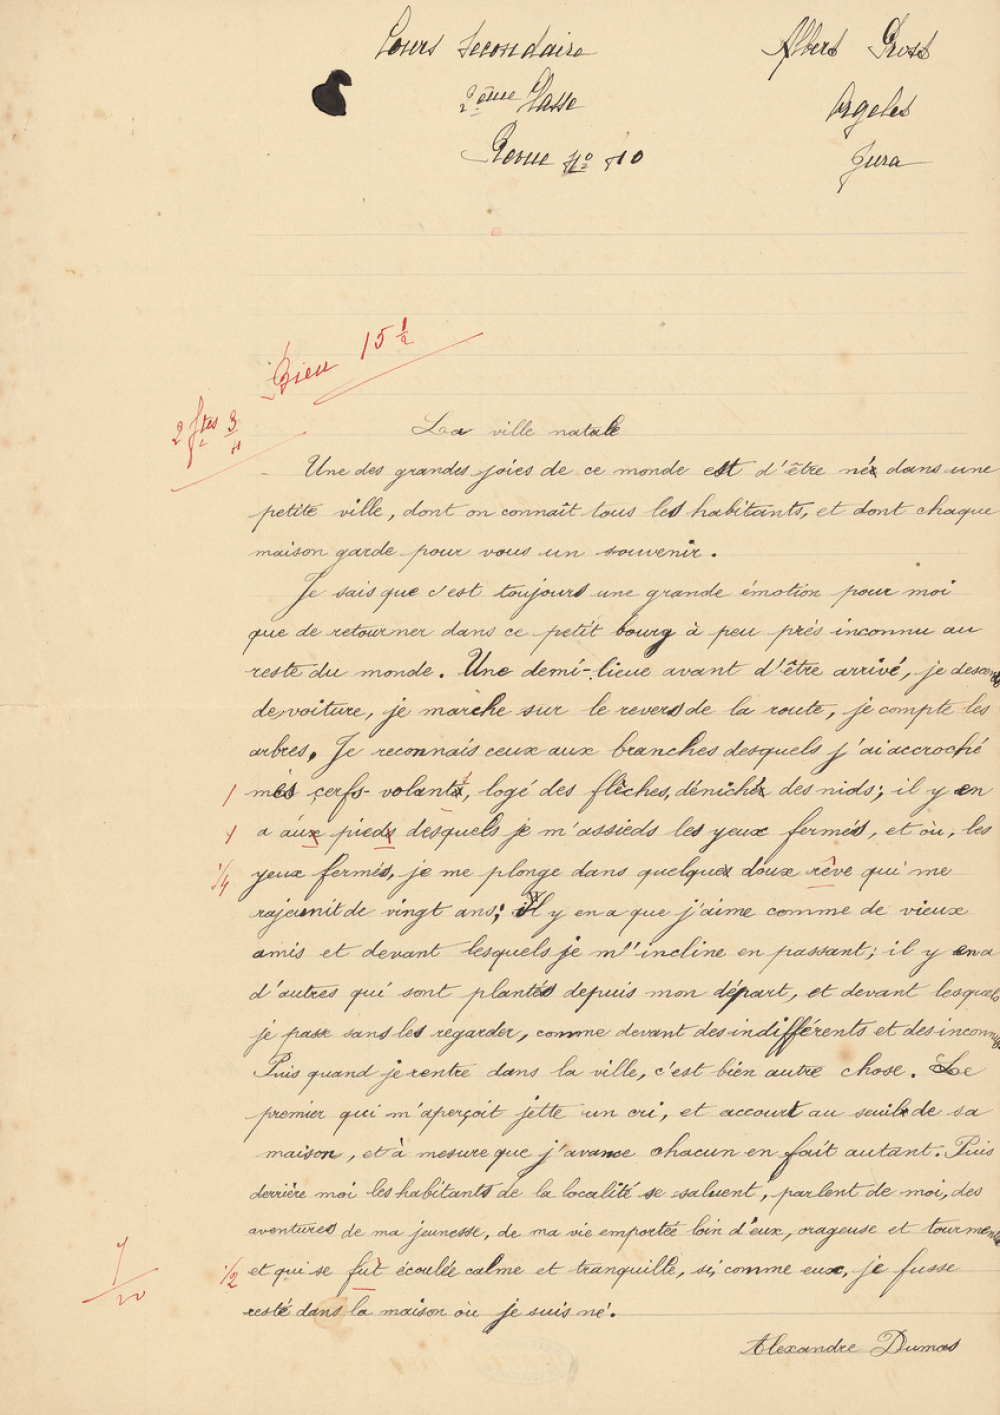 Cours Secondaire
Albert Gros
2ème Classe
Argeles
Devoir No 10
Jura
Bien 15 1/2
2 ftes 3/4
La ville natale
Une des grandes joies de ce monde est d'être né dans une
petite ville, dont on connaît tous les habitants, et dont chaque
maison garde pour vous un souvenir.
Je sais que c'est toujours une grande émotion pour moi
que de retourner dans ce petit bourg à peu près inconnu au
reste du monde. Une demi-lieue avant d'être arrivé, je descends
de voiture, je marche sur le revers de la route, je compte les
arbres. Je reconnais ceux aux branches desquels j'ai accroché
1 mes cerfs-volants, logé des flèches, déniché des nids; il y en
1 a aux pieds desquels je m'assieds les yeux fermés, et où, les
1/4 yeux fermés, je me plonge dans quelques doux rêve qui me
rajeunit de vingt ans; il y en a que j'aime comme de vieux
amis et devant lesquels je m'incline en passant; il y en a
d'autres qui sont plantés depuis mon départ, et devant lesquels
je passe sans les regarder, comme devant des indifférents et des inconnus
Puis quand je rentre dans la ville, c'est bien autre chose. Le
premier qui m'aperçoit jette un cri, et accourt au seuil de sa
maison, et à mesure que j'avance chacun en fait autant. Puis
derrière moi les habitants de la localité se saluent, parlent de moi, des
aventures de ma jeunesse, de ma vie emportée loin d'eux, orageuse et tourmentée
1/2 et qui se fut écoulée calme et tranquille, si, comme eux, je fusse
resté dans la maison où je suis né.
Alexandre Dumas